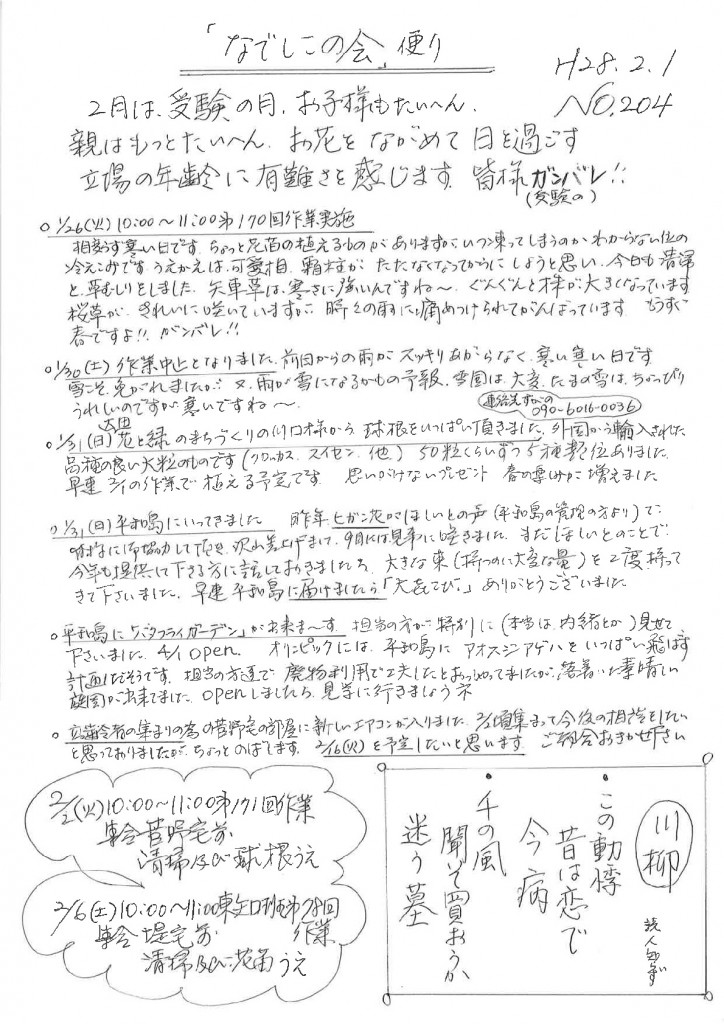 「なでしこの会」便り
H28.2.1
NO.204
2月は、受験の月、お子様もたいへん、
親はもっとたいへん、お花をながめて日を過ごす
立場の年齢に有難さを感じます 皆様ガンバレ!!
(受験の)
○1/26(火)10:00〜11:00第170回作業実施
相変らず寒い日です、ちょっと花苗の植えるものがありますがいつ凍ってしまうのかわからない位の
冷えこみです、うえかえは、可愛相、霜柱がたたなくなってからにしようと思い、今日も清掃
と、草むしりをしました、矢車草は、寒さに強いんですね〜、ぐんぐんと株が大きくなっています
桜草が、きれいに咲いていますが、時々の雨に痛めつけられてがんばっています もうすぐ
春ですよ!! ガンバレ!!
○1/30(土)作業中止となりました、前日からの雨がスッキリあがらなく、寒い寒い日です
雪こそ、免がれましたが 又、雨が雪になるかもの予報、雪国は、大変、たまの雪は、ちょっぴり
うれしいのですが寒いですね〜
連絡先すがの
090-6016-0036
○1/31(日)大田花と緑のまちづくりの川口様から球根をいっぱい頂きました、外国から輸入された
品種の良い大粒のものです(クロッカス、スイセン、他) 50粒くらいずつ5種類位ありました、
早速2/1の作業で植える予定です、 思いがけないプレゼント 春の楽しみに増えました
○1/31(日)平和島にいってきました 昨年、ヒガン花がほしいとの声(平和島の管理の方より)で、
皆様に御協力して頂き、沢山差上げまして、9月には見事に咲きました、まだほしいとのことで、
今年も提供して下さる方に話しておきましたら、大きな束(持つのに大変な量)を2度持って
きて下さいました、早速平和島に届けましたら「大喜び」 ありがとうございました、
○平和島に「バタフライガーデン」が出来ま〜す、担当の方が特別に(本当は、内緒とか)見せて
下さいました、4/1 open、 オリンピックには、平和島にアオスジアゲハをいっぱい飛ばす
計画だそうです、担当の方達で、廃物利用で工夫したとおっしゃってましたが、落着いた素晴しい
庭園が出来てました、openしましたら、見学に行きましょうネ
○高齢者の集まりの為の菅野宅の部屋に新しいエアコンが入りました、2/頃集まって今後の相談をしたい
と思っておりましたが、ちょっとのばします、2/16(火)を予定したいと思います、ご都合おきかせ下さい
2/2(火)10:00〜11:00第171回作業
集合菅野宅前
清掃及び球根うえ
2/6(土)10:00〜11:00東矢口班第78回
作業
集合 堤宅前
清掃及び花苗うえ
川柳
読人知らず
・この動悸
昔は恋で
今病
・千の風
聞いて買おうか
迷う墓